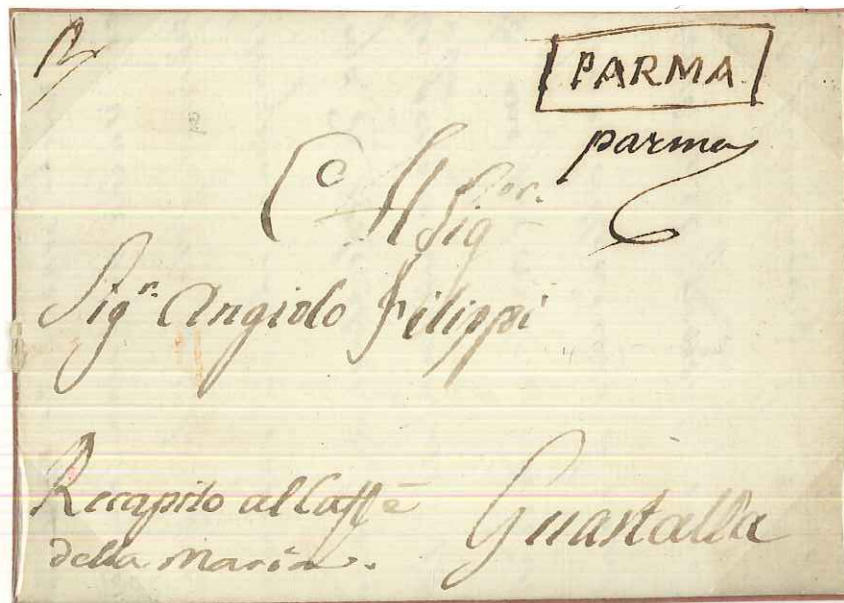 PARMA
parma
Al Sig.or
Sig.r Angiolo Filippi
Recapito al Caffè
della Maria.
Guastalla